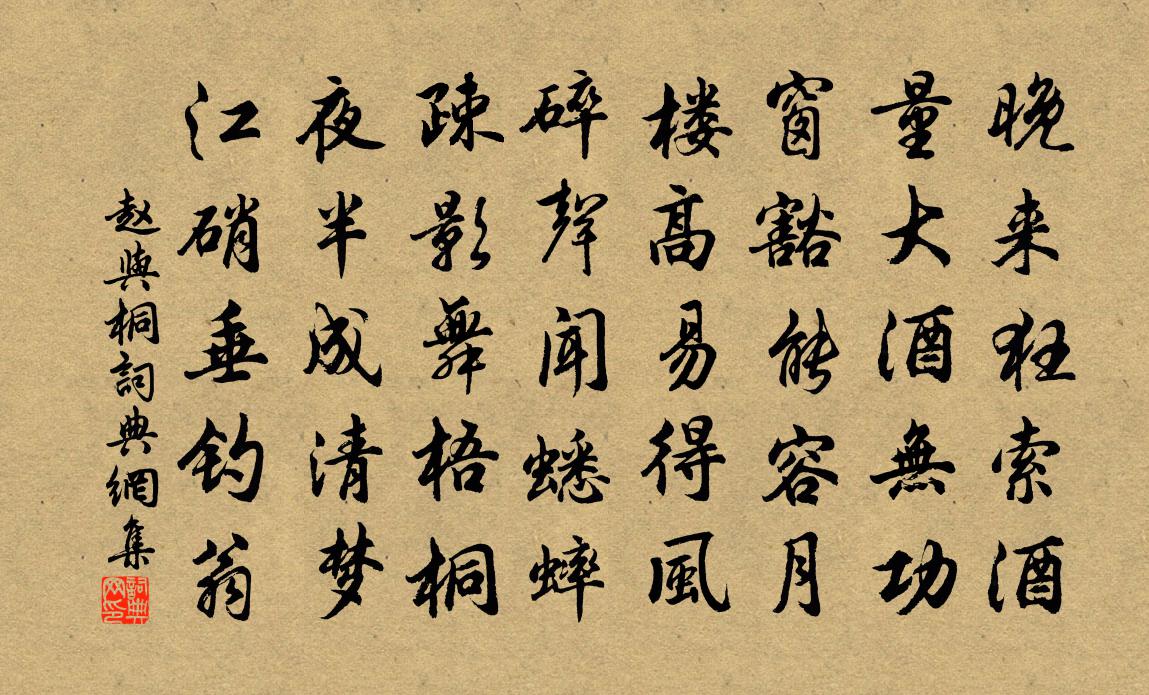 晚来狂索酒
量大酒無功
窗豁能容月
楼高易得風
碎聲闻蟋蟀
疎影舞梧桐
夜半成清梦
江硝垂钓翁
赵與桐詞典網集
詞典网印